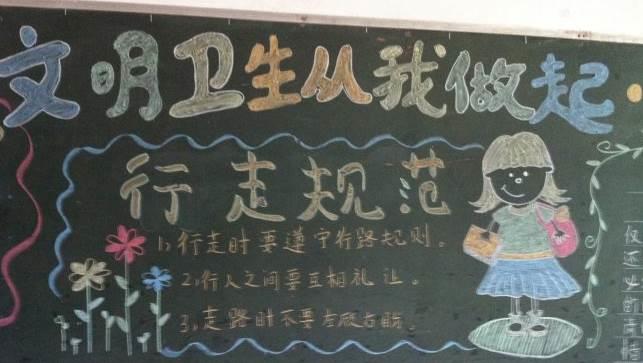 文明卫生从我做起
行走规范
1、行走时要遵守行路规则。
2、行人之间要互相礼让。
3、走路时不要左顾右盼。